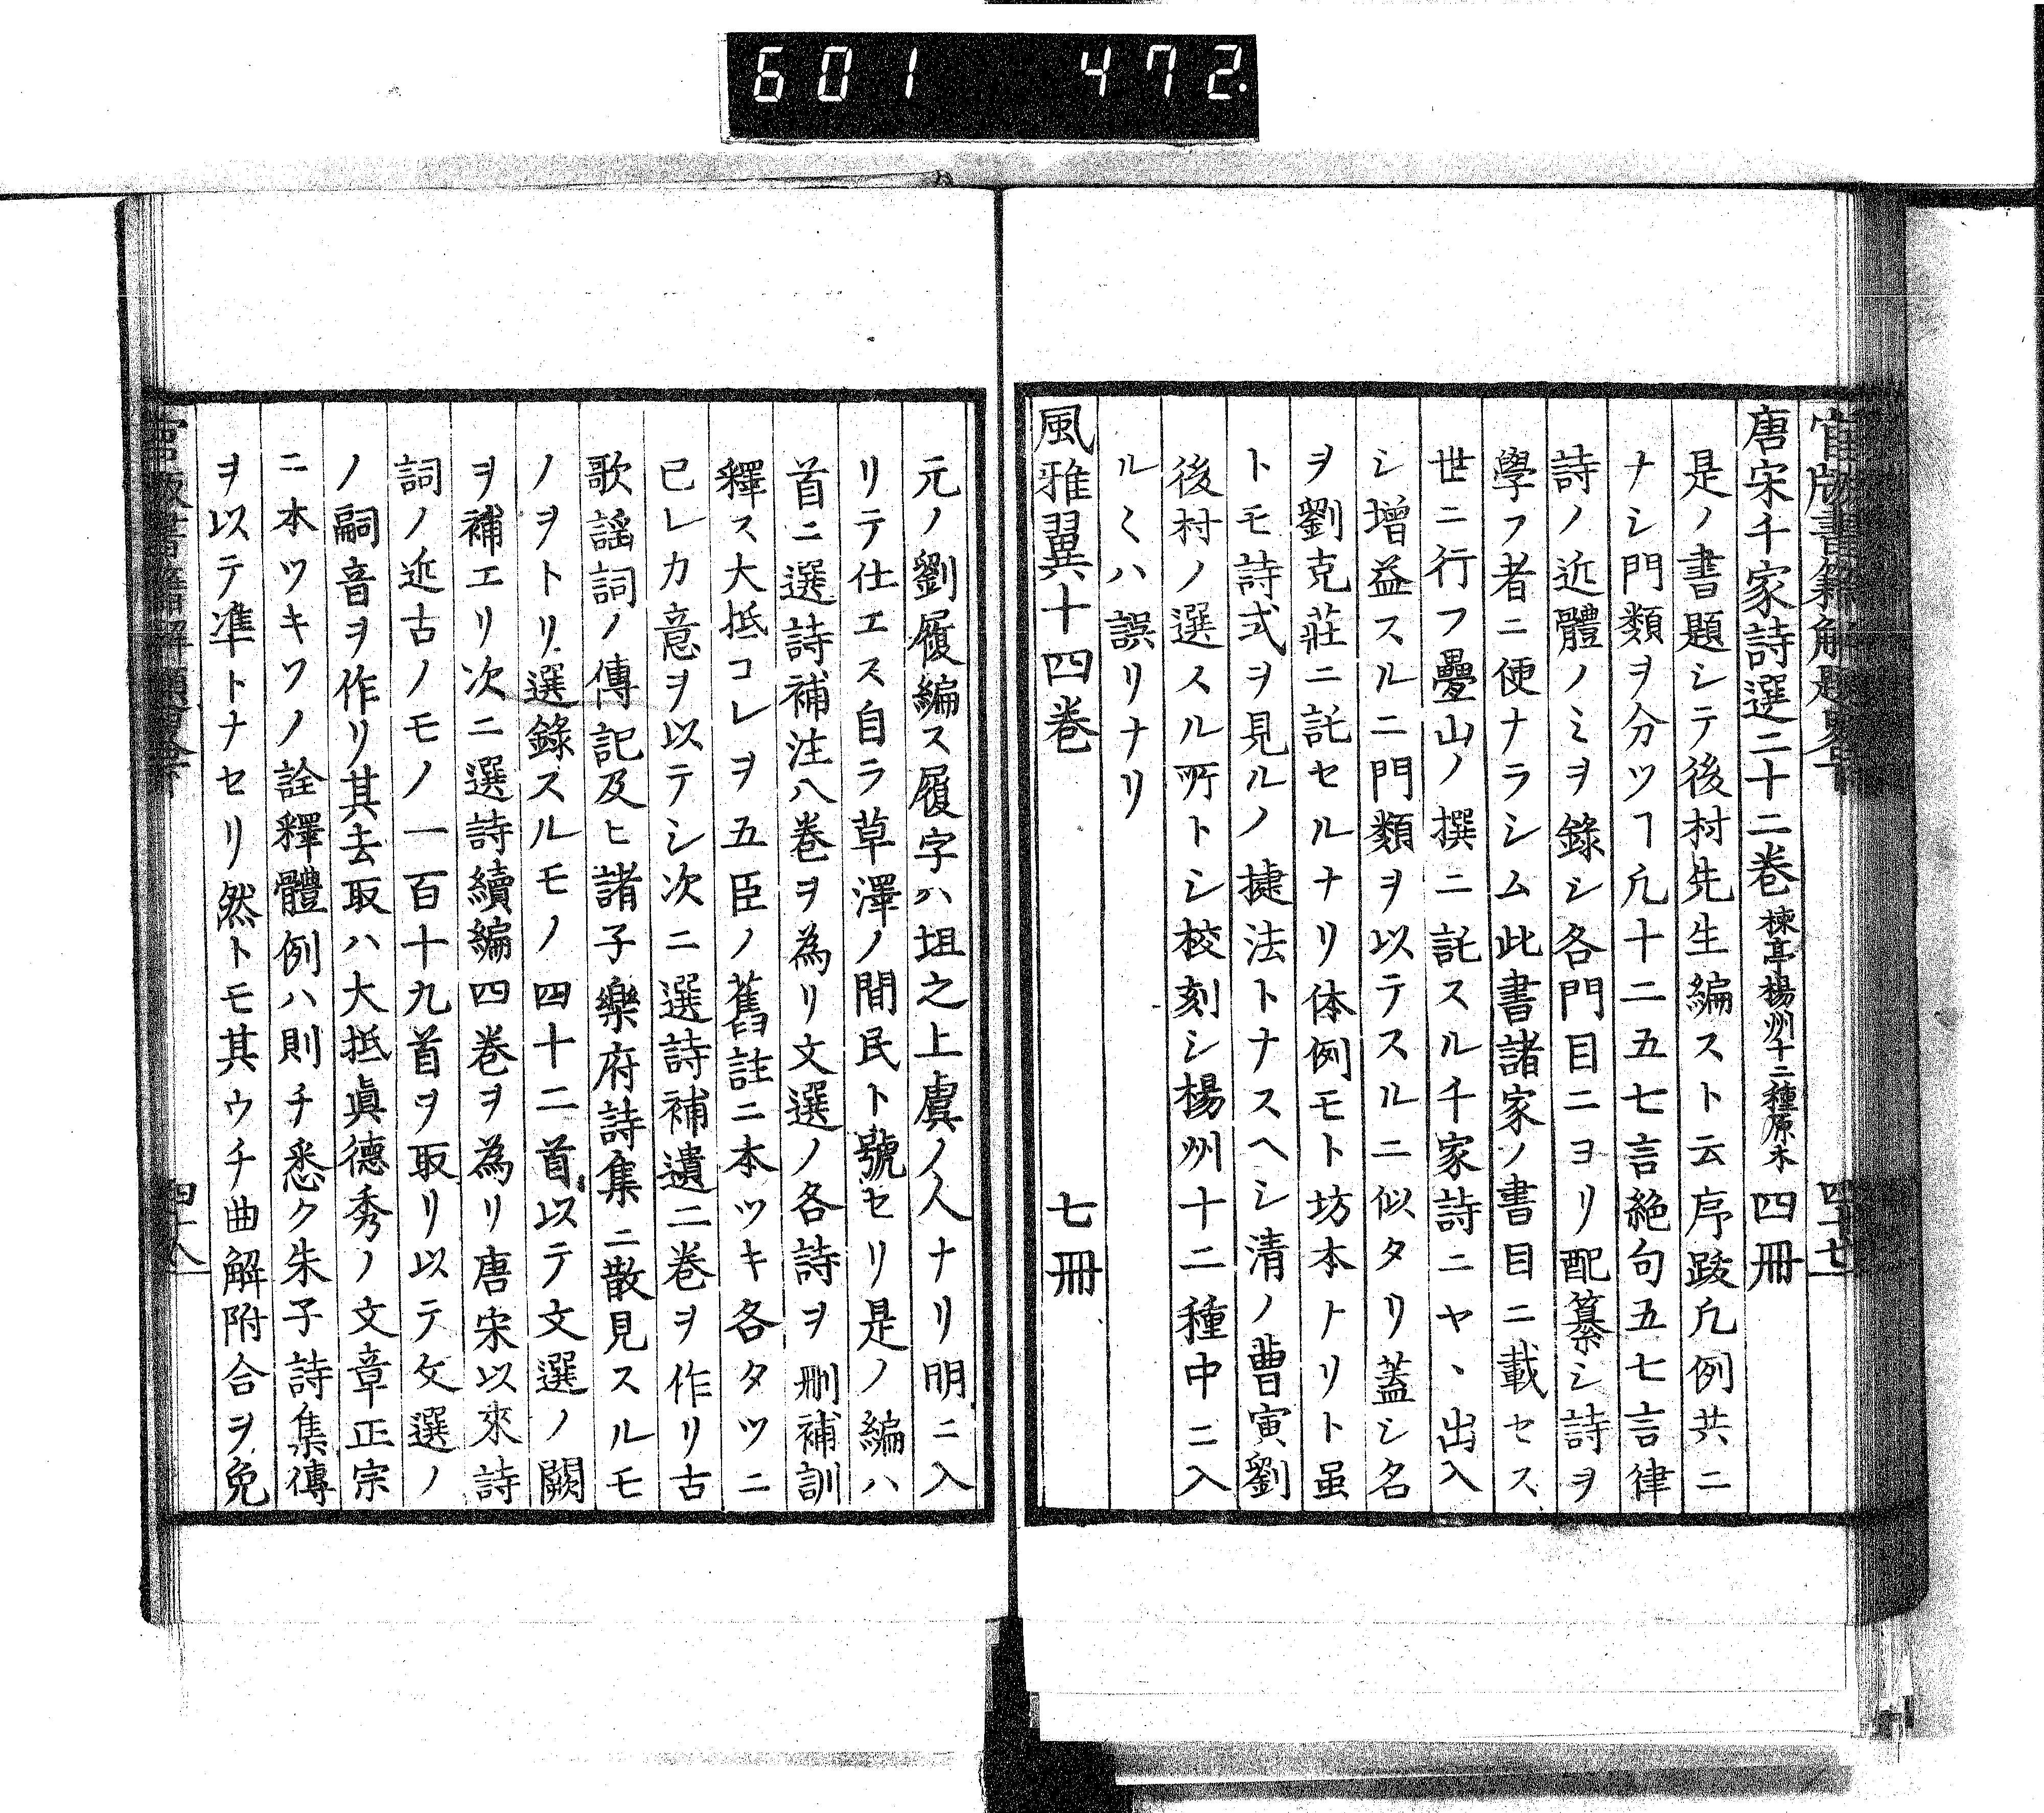 601 472
官版書籍解題畧下 四十七
唐宋千家詩選二十二巻 楝亭楊州十二種原本 四冊
是ノ書題シテ後村先生編スト云序跋凡例共ニ
ナシ門類ヲ分ツヿ凢十二五七言絶句五七言律
詩ノ近體ノミヲ錄シ各門目ニヨリ配纂シ詩ヲ
學フ者ニ便ナラシム此書諸家ノ書目ニ載セス
世ニ行フ疊山ノ撰ニ託スル千家詩ニヤヽ出入
シ增益スルニ門類ヲ以テスルニ似タリ蓋シ名
ヲ劉克莊ニ託セルナリ体例モト坊本トリト虽
トモ詩式ヲ見ルノ捷法トナスヘシ清ノ曹寅劉
後村ノ選スル所トシ校刻シ楊州十二種中ニ入
ルヽハ誤リナリ
風雅翼十四巻 七冊
元ノ劉履編ス履字ハ坦之上虞ノ人ナリ明ニ入
リテ仕エス自ラ草澤ノ間民ト號セリ是ノ編ハ
首ニ選詩補注八巻ヲ為リ文選ノ各詩ヲ刪補訓
釋ス大抵コレヲ五臣ノ舊註ニ本ツキ各タツニ
已レカ意ヲ以テシ次ニ選詩補遺二巻ヲ作リ古
歌謡詞ノ傳記及ヒ諸子樂府詩集ニ散見スルモ
ノヲトリ選錄スルモノ四十二首以テ文選ノ闕
ヲ補エリ次ニ選詩續編四巻ヲ為リ唐宋以來詩
詞ノ近古ノモノ一百十九首ヲ取リ以テ文選ノ
ノ嗣音ヲ作リ其去取ハ大抵眞德秀ノ文章正宗
ニ本ツキソノ詮釋體例ハ則チ悉ク朱子詩集傳
ヲ以テ準トナセリ然トモ其ウチ曲解附合ヲ免
官版書籍解題畧下 四十八